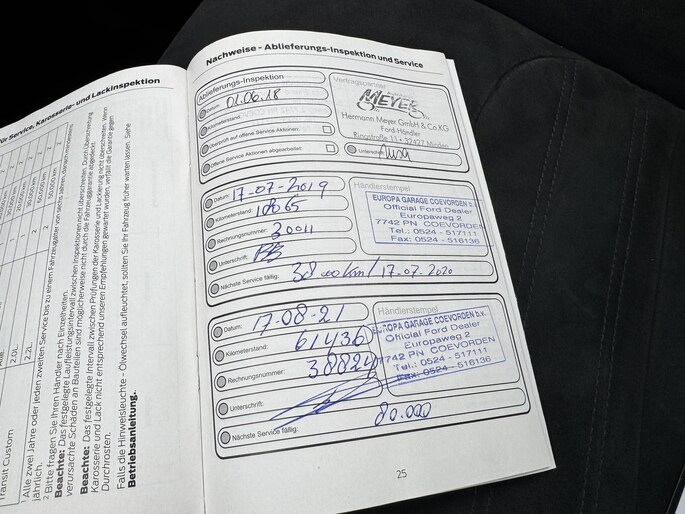 für Service, Karosserie- und Lackinspektion
Transit Custom
2.0L
2.2L
¹ Alle zwei Jahre oder jeden zweiten Service bis zu einem Fahrzeugalter von sechs Jahren, danach
jährlich.
² Bitte fragen Sie Ihren Händler nach Einzelheiten.
Beachte: Das festgelegte Laufleistungsintervall zwischen Inspektionen nicht überschreiten. Durch Überschreitung
verursachte Schäden an Bauteilen sind möglicherweise nicht durch die Fahrzeuggarantie abgedeckt.
Beachte: Das festgelegte Intervall zwischen Prüfungen der Karosserie und Lackierung nicht überschreiten. Wenn
Karosserie und Lack nicht entsprechend unseren Empfehlungen gewartet wurden, verfällt die Garantie gegen
Durchrosten.
Falls die Hinweisleuchte - Ölwechsel aufleuchtet, sollten Sie Ihr Fahrzeug früher warten lassen. Siehe
Betriebsanleitung.
Nachweise - Ablieferungs-Inspektion und Service
Ablieferungs-Inspektion
Datum: 01.06.18
Kilometerstand:
Überprüft auf offene Service Aktionen:
Offene Service Aktionen abgearbeitet:
Vertragspartner
MEYER
Hermann Meyer GmbH & Co.KG
Ford-Händler
Ringstraße 11 • 32427 Minden
Unterschrift:
Datum: 17-07-2019
Kilometerstand: 18865
Rechnungsnummer: 30011
Unterschrift:
Nächste Service fällig: 38000km/17-07-2020
Händlerstempel
EUROPA GARAGE COEVORDEN b.v.
Official Ford Dealer
Europaweg 2
7742 PN COEVORDEN
Tel.: 0524 - 517111
Fax: 0524 - 516136
Datum: 17-08-21
Kilometerstand: 61436
Rechnungsnummer: 38824
Unterschrift:
Nächste Service fällig: 80.000
Händlerstempel
EUROPA GARAGE COEVORDEN b.v.
Official Ford Dealer
Europaweg 2
7742 PN COEVORDEN
Tel.: 0524 - 517111
Fax: 0524 - 516136
25